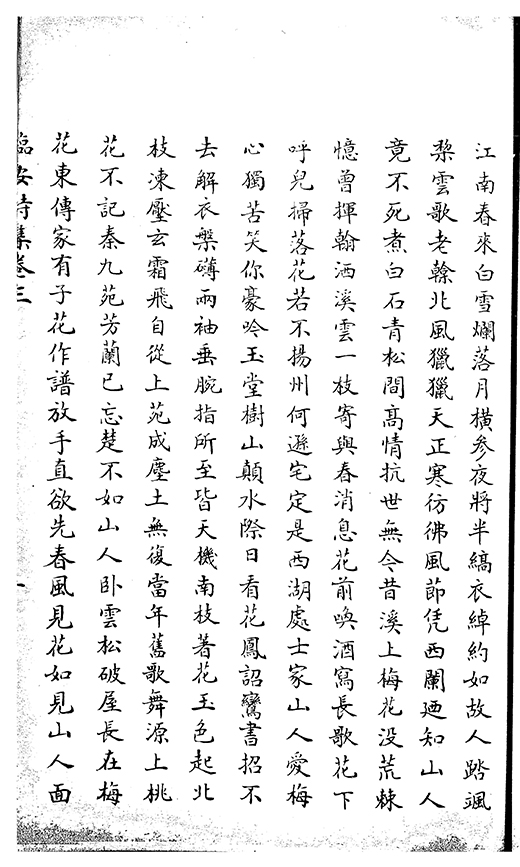 江南春來白雪爛落月橫參夜將半縞衣綽約如故人踏颯
棃雲歌老榦北風獵獵天正寒彷彿風節凭西闌廼知山人
竟不死煮白石青松間髙情抗世無今昔溪上梅花没荒棘
憶曾揮翰洒溪雲一枝寄與春消息花前喚酒寫長歌花下
呼兒掃落花若不揚州何遜宅定是西湖處士家山人愛梅
心獨苦笑你豪吟玉堂樹山顛水際日看花鳳詔鸞書招不
去解衣槃礴兩袖垂腕指所至皆天機南枝著花玉色起北
枝凍壓玄霜飛自從上苑成塵土無復當年舊歌舞源上桃
花不記秦九苑芳蘭已忘楚不如山人卧雲松破屋長在梅
花東傳家有子花作譜放手直欲先春風見花如見山人面
臨安詩集卷三